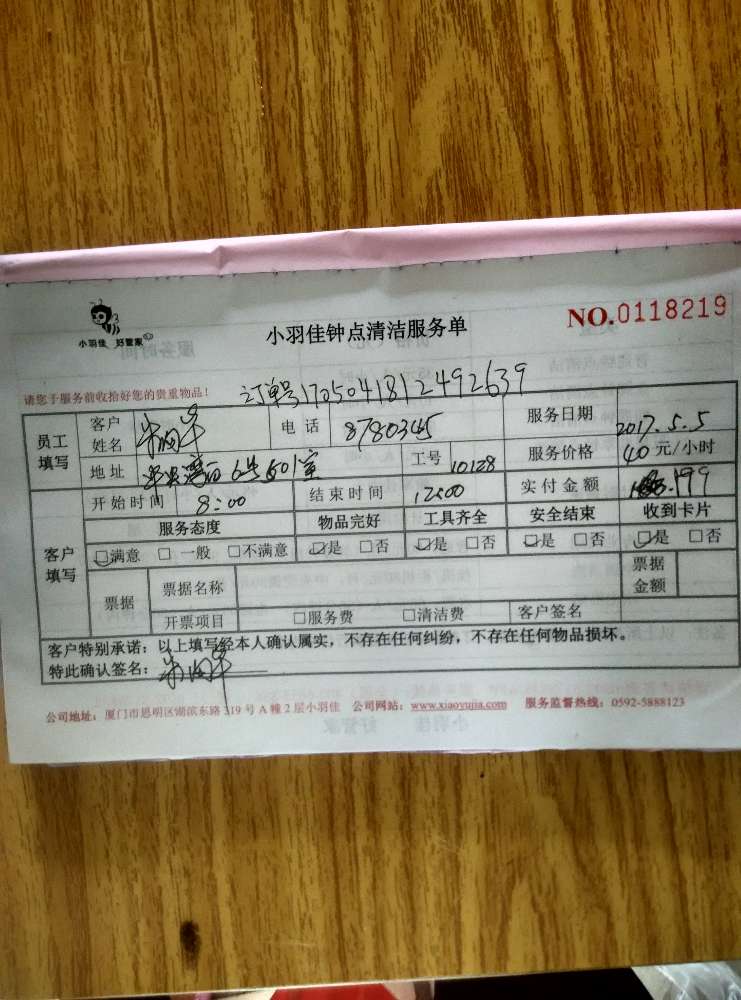 小羽佳 好管家
小羽佳钟点清洁服务单
NO.0118219
请您于服务前收拾好您的贵重物品!
订单号1705041812492639
员工填写 客户姓名 电话 8780345 服务日期 2017.5.5
地址 6号601室 工号 10128 服务价格 40元/小时
客户填写 开始时间 8:00 结束时间 12:00 实付金额 199
服务态度 物品完好 工具齐全 安全结束 收到卡片
□满意 □一般 □不满意 □是 □否 □是 □否 □是 □否 □是 □否
票据 票据名称 票据金额
开票项目 □服务费 □清洁费 客户签名
客户特别承诺:以上填写经本人确认属实,不存在任何纠纷,不存在任何物品损坏。
特此确认签名:
公司地址:厦门市思明区湖滨东路319号A幢2层小羽佳 公司网站:www.xiaoyujia.com 服务监督热线:0592-5888123